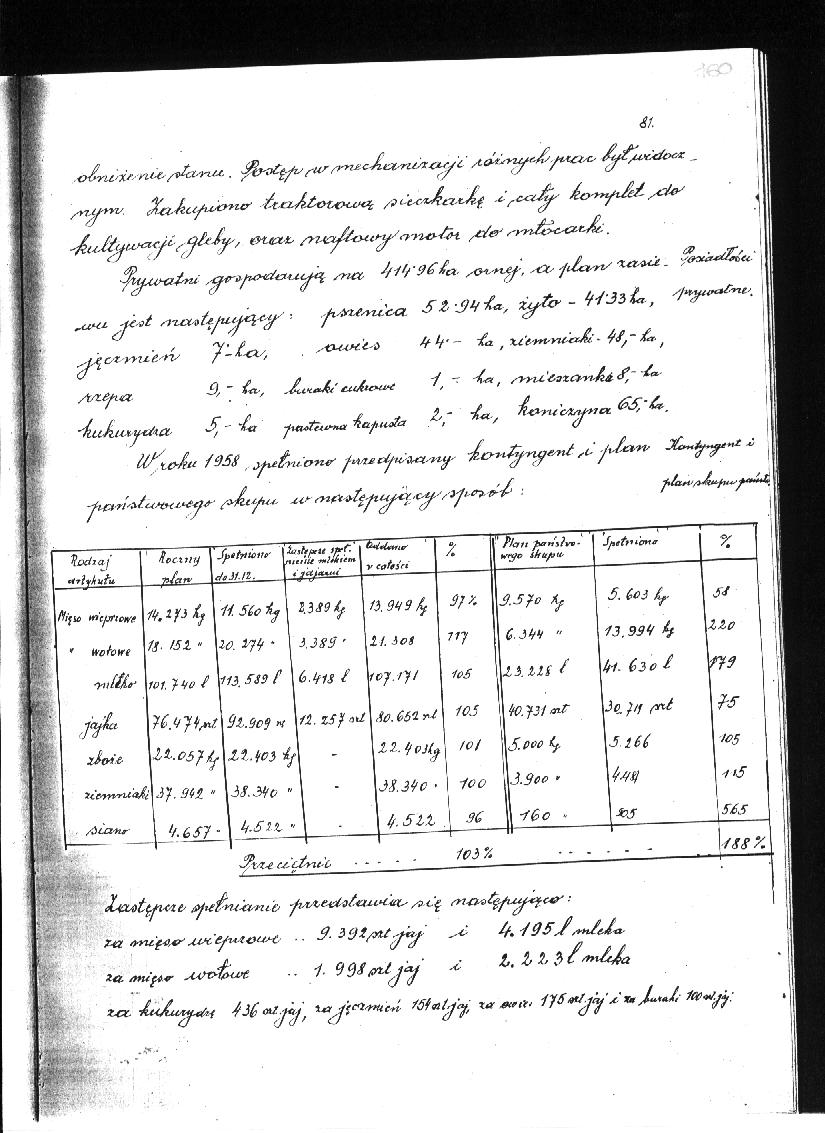 160
81.
obniżenie stanu. Postęp w mechanizacji różnych prac był widocz-
nym. Zakupiono traktorową sieczkarkę i cały komplet do
kultywacji gleby, oraz naftowy motor do młócarki.
Prywatni gospodarują na 414·96 ha ornej, a plan zasie- Posiadłości
wu jest następujący: pszenica 52·94 ha, żyto - 41·33 ha, prywatne.
jęczmień 7·- ha, owies 44·- ha, ziemniaki - 48,- ha,
rzepa 9,- ha, buraki cukrowe 1,- ha, mieszanka 8,- ha
kukurydza 5,- ha pastewna kapusta 2,- ha, koniczyna 65,- ha.
W roku 1958 spełniono przedpisany kontyngent i plan Kontyngent i
państwowego skupu w następujący sposób: plan skupu państw.
Rodzaj artykułu Roczny plan Spełniono do 31.12. Zastępcze spełnienie mlékiem i jajami Oddano v całości % Plan państwowego skupu Spełniono %
Mięso wieprzowe 14.273 kg 11.560 kg 2.389 kg 13.949 kg 97% 9.570 kg 5.603 kg 58
" wołowe 18.152 " 20.274 " 3.389 " 21.308 117 6.344 " 13.994 kg 220
mléko 101.740 l 113.589 l 6.418 l 107.171 105 23.228 l 41.630 l 179
jajka 76.474 szt 92.909 sz 12.257 szt 80.652 szt 105 40.731 szt 30.719 szt 75
zboże 22.057 kg 22.403 kg - 22.403kg 101 5.000 kg 5.266 105
ziemniaki 37.942 " 38.340 " - 38.340 " 100 3.900 " 4.481 115
siano 4.657 " 4.522 " - 4.522 96 160 " 905 565
Przeciętnie ..... 103% ...... 188%
Zastępcze spełnianie przedstawia się następująco:
za mięso wieprzowe .. 9.392 szt jaj i 4.195 l mleka
za mięso wołowe .. 1.998 szt jaj i 2.223 l mleka
za kukurydzę 436 szt. jaj, za jęczmień 154 szt. jaj, za owies 175 szt. jaj i za buraki 100 szt. jaj.